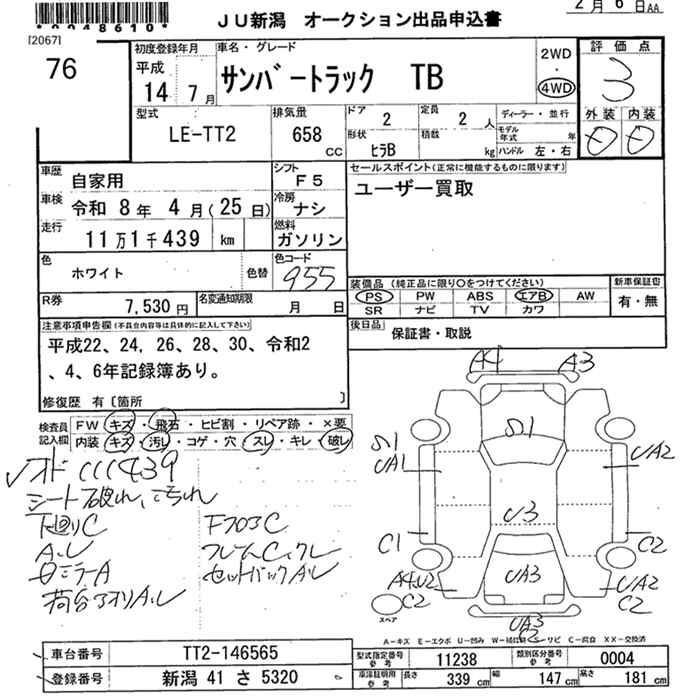 2月 6日AA
*0048610*
JU新潟 オークション出品申込書
[2067]
76
初度登録年月
平成
14年7月
車名・グレード
サンバートラック TB
2WD
・
4WD
評価点
3
外装 内装
D D
型式
LE-TT2
排気量
658
CC
ドア
2
形状
ヒラB
定員
2人
積載
kg
ディーラー・並行
モデル年式 年
ハンドル 左・右
車歴
自家用
シフト
F5
車検
令和 8年 4月(25日)
冷房
ナシ
走行
11万1千439 km
燃料
ガソリン
色
ホワイト
色替
色コード
955
R券
7,530円
名変通知期限
月 日
セールスポイント(正常に機能するものに限ります)
ユーザー買取
装備品(純正品に限り○をつけてください)
PS PW ABS エアB AW
SR ナビ TV カワ
新車保証書
有・無
後日品
保証書・取説
注意事項申告欄(不具合内容等は具体的に記入して下さい)
平成22、24、26、28、30、令和2
、4、6年記録簿あり。
修復歴 有〔箇所 〕
検査員記入欄
FW キズ・飛石・ヒビ割・リペア跡・×要
内装 キズ・汚レ・コゲ・穴・スレ・キレ・破レ
✓オド111439
シート破れ、こすれ
下廻りC
A,U
ミラーA
荷台アオリA,U
フロアC
フレームC
セットバックA,U
A4 A3
S1
S1
UA1
UA2
U3
C1
C2
UA3
A4,U2
C2
UA2
C2
UA3
スペア
A-キズ E-エクボ U-凹み W-補修跡 S-サビ C-腐食 XX-交換済
車台番号
TT2-146565
登録番号
新潟 41 さ 5320
型式指定番号
参考
11238
類別区分番号
参考
0004
車検証明用
参考
長さ
339 cm
幅
147 cm
高さ
181 cm